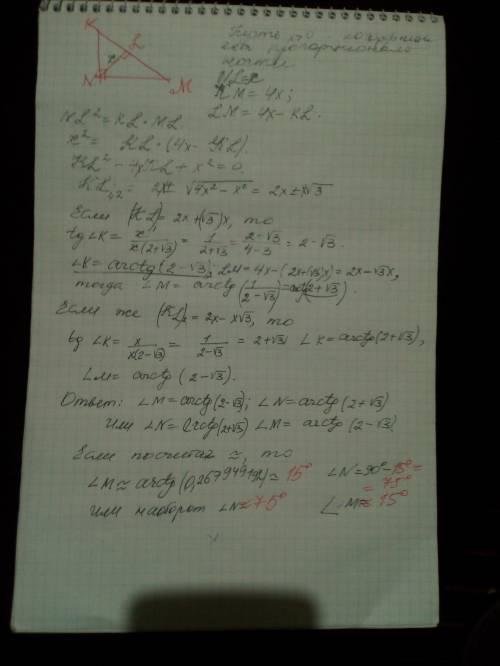 K
L
x
N
M
Пусть x>0
коэффициент пропорциональности
NL=x
KM = 4x;
LM = 4x - KL.
NL² = KL · ML
x² = KL · (4x - KL).
KL² - 4x KL + x² = 0.
KL₁,₂ = 2x ± √4x² - x² = 2x ± x√3
Если (KL)₁ = 2x + (√3)x, то
tg∠K = x / x(2+√3) = 1 / 2+√3 = 2-√3 / 4-3 = 2-√3.
∠K = arctg(2-√3); LM = 4x - (2x+(√3)x) = 2x - √3x,
тогда ∠M = arctg(1 / 2-√3) = arctg(2+√3).
Если же (KL)₂ = 2x - x√3, то
tg∠K = x / x(2-√3) = 1 / 2-√3 = 2+√3 ∠K = arctg(2+√3),
∠M = arctg (2-√3).
Ответ: ∠M = arctg(2-√3); ∠N = arctg(2+√3)
или ∠N = arctg(2+√3) ∠M = arctg (2-√3).
Если посчитать ≈, то
∠M ≈ arctg(0,267949192) ≈ 15° ∠N = 90° - 15° =
= 75°
или наоборот ∠N ≈ 75° ∠M ≈ 15°